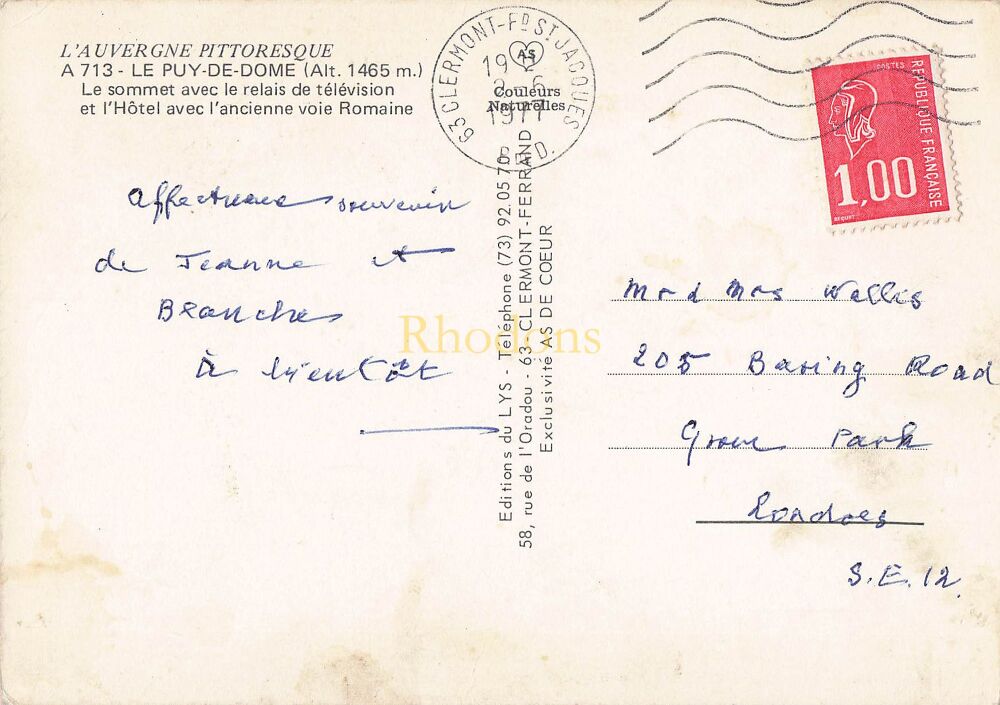 L'AUVERGNE PITTORESQUE
A 713 - LE PUY-DE-DOME (Alt. 1465 m.)
Le sommet avec le relais de télévision
et l'Hôtel avec l'ancienne voie Romaine
63 CLERMONT-FD ST JACQUES
1977
P. DE D.
AS
Couleurs
Naturelles
POSTES
REPUBLIQUE FRANÇAISE
1,00
BEQUET
Affectueux souvenir
de Jeanne et
Blanche
à bientôt
Editions du LYS - Téléphone (73) 92.05.70
58, rue de l'Oradou - 63 - CLERMONT-FERRAND
Exclusivité AS DE COEUR
Rhodons
Mr d Mrs Wallis
205 Baring Road
Grove Park
Londres
S.E.12.